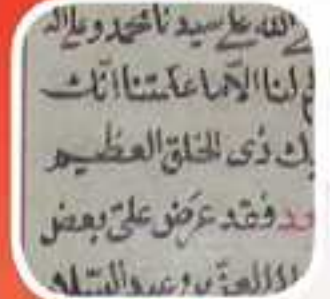 الله على سيدنا محمد وعلى اله
لنا الا ما علمتنا انك
ذى الخلق العظيم
فقد عرض على بعض